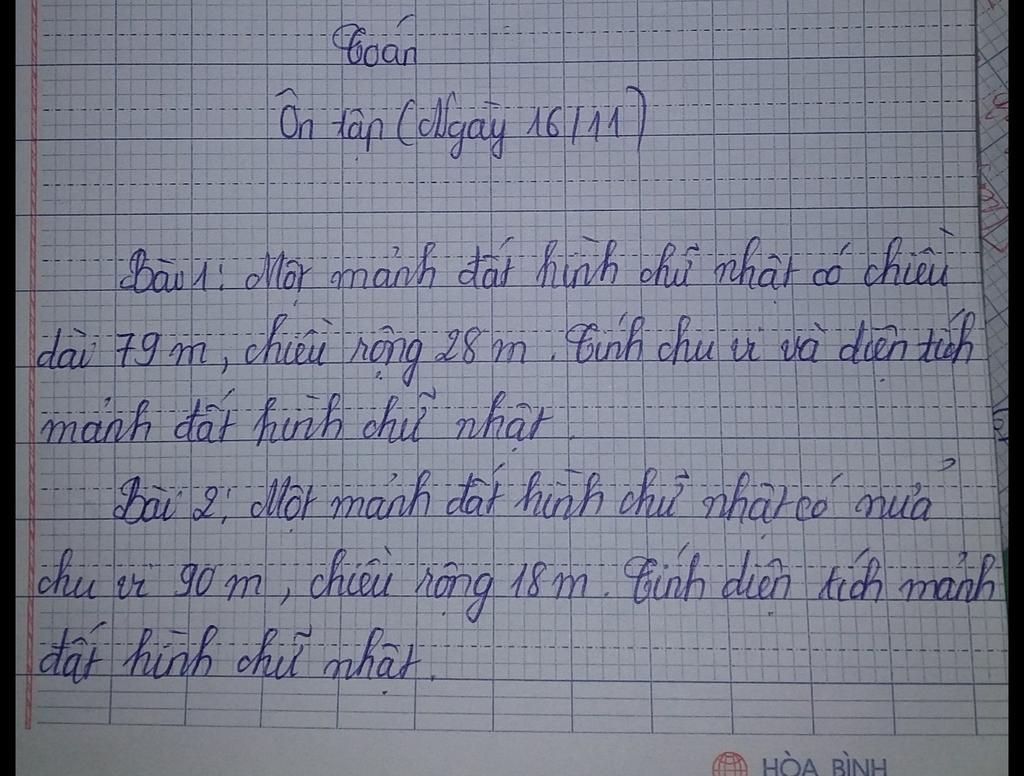 Toán
Ôn tập (Ngày 16/11)
Bài 1: Một mảnh đất hình chữ nhật có chiều
dài 79 m, chiều rộng 28 m. Tính chu vi và diện tích
mảnh đất hình chữ nhật.
Bài 2: Một mảnh đất hình chữ nhật có nửa
chu vi 90 m, chiều rộng 18 m. Tính diện tích mảnh
đất hình chữ nhật.
HÒA BÌNH